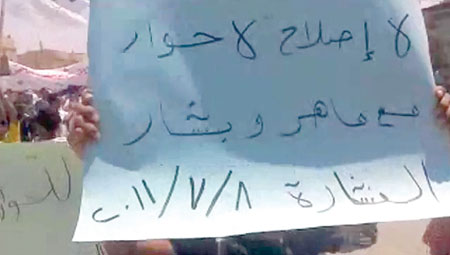 لا إصلاح لا حوار
مع ماهر و بشار
العشارة ٢٠١١/٧/٨